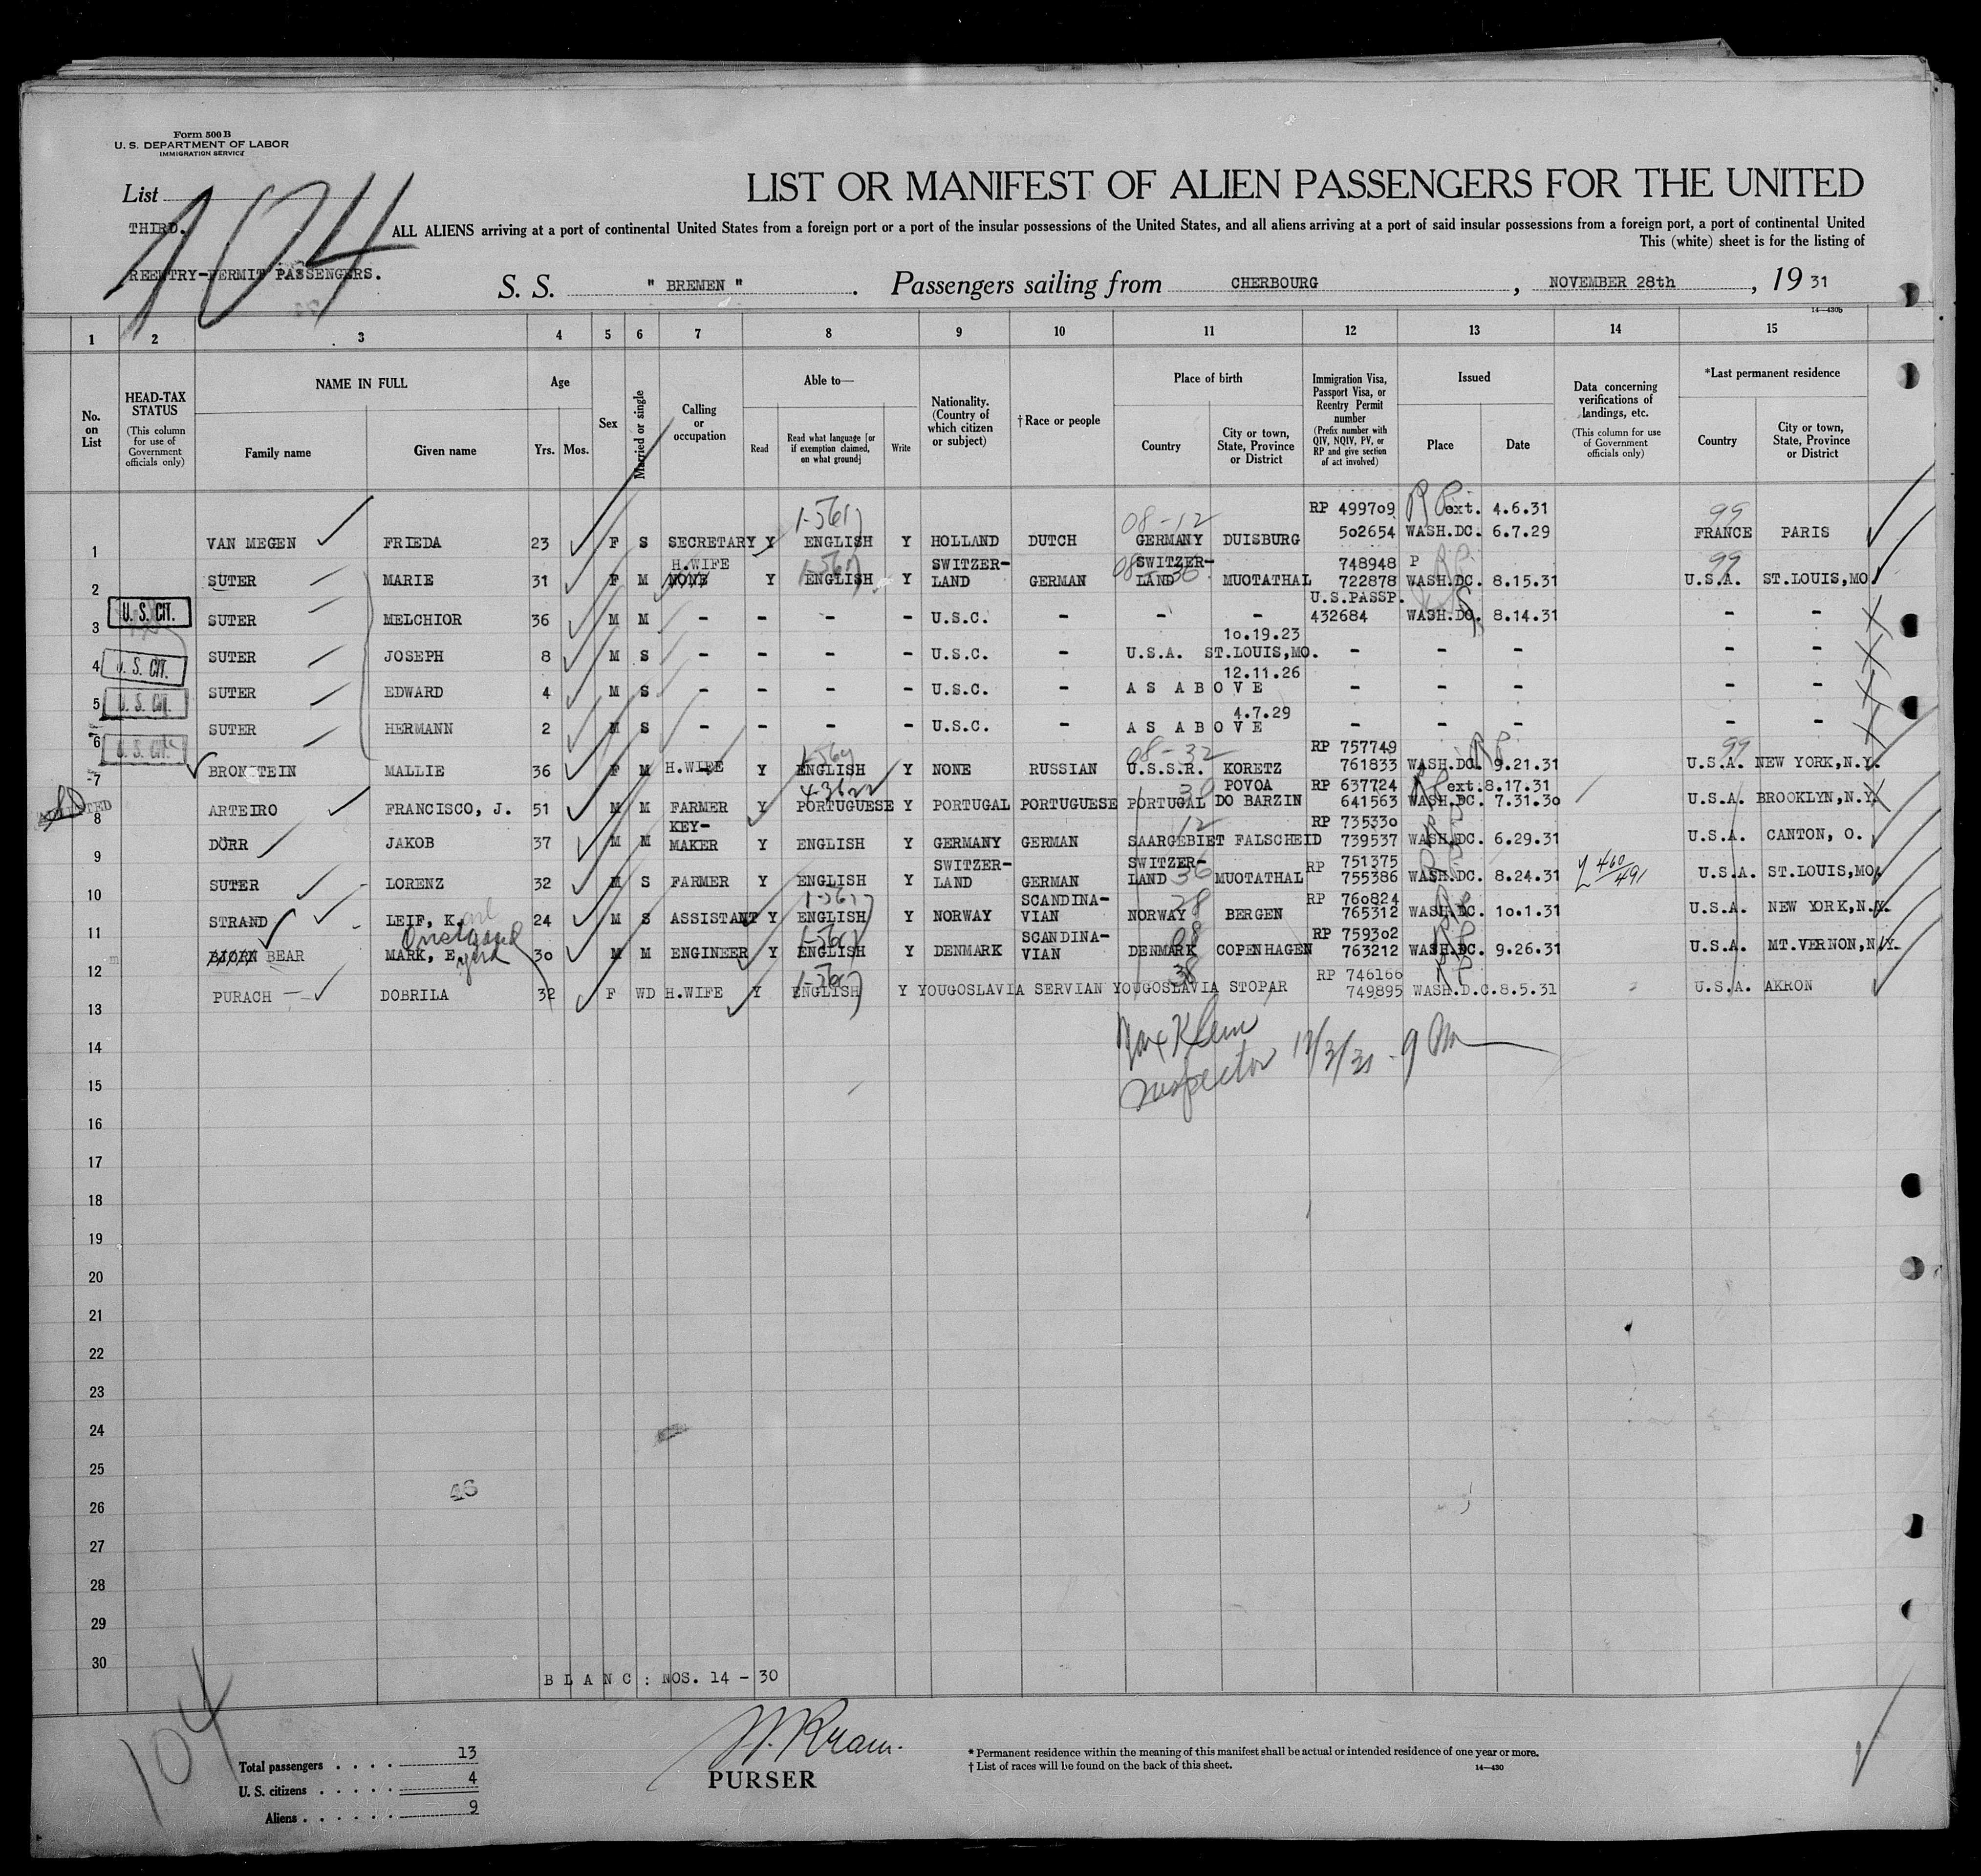 Form 500 B
U. S. DEPARTMENT OF LABOR
IMMIGRATION SERVICE
List
104
THIRD.
REENTRY-PERMIT PASSENGERS.
LIST OR MANIFEST OF ALIEN PASSENGERS FOR THE UNITED
ALL ALIENS arriving at a port of continental United States from a foreign port or a port of the insular possessions of the United States, and all aliens arriving at a port of said insular possessions from a foreign port, a port of continental United
This (white) sheet is for the listing of
S. S. " BREMEN ". Passengers sailing from CHERBOURG, NOVEMBER 28th, 19 31
14—430b
1 2 3 4 5 6 7 8 9 10 11 12 13 14 15
No. on List
HEAD-TAX STATUS (This column for use of Government officials only)
NAME IN FULL
Family name Given name
Age
Yrs. Mos.
Sex
Married or single
Calling or occupation
Able to—
Read Read what language [or if exemption claimed, on what ground] Write
Nationality. (Country of which citizen or subject)
†Race or people
Place of birth
Country City or town, State, Province or District
Immigration Visa, Passport Visa, or Reentry Permit number (Prefix number with QIV, NQIV, PV, or RP and give section of act involved)
Issued
Place Date
Data concerning verifications of landings, etc. (This column for use of Government officials only)
*Last permanent residence
Country City or town, State, Province or District
1-567 08-12 RP 499709 RP ext. 4.6.31 99
1 VAN MEGEN FRIEDA 23 F S SECRETARY Y ENGLISH Y HOLLAND DUTCH GERMANY DUISBURG 502654 WASH.DC. 6.7.29 FRANCE PARIS
H.WIFE 1-567 SWITZER- 08-36 SWITZER- 748948 P 99
2 SUTER MARIE 31 F M NONE Y ENGLISH Y LAND GERMAN LAND MUOTATHAL 722878 WASH.DC. 8.15.31 U.S.A. ST.LOUIS,MO
U.S.PASSP.
U. S. CIT.
3 SUTER MELCHIOR 36 M M - - - - U.S.C. - - - 432684 WASH.DC. 8.14.31 - -
10.19.23
4 U. S. CIT. SUTER JOSEPH 8 M S - - - - U.S.C. - U.S.A. ST.LOUIS,MO. - - - - -
12.11.26
5 U. S. CIT. SUTER EDWARD 4 M S - - - - U.S.C. - AS ABOVE - - - - -
4.7.29
6 U. S. CIT. SUTER HERMANN 2 M S - - - - U.S.C. - AS ABOVE - - - - -
1-567 08-32 RP 757749 RP 99
7 BRONSTEIN MALLIE 36 F M H.WIFE Y ENGLISH Y NONE RUSSIAN U.S.S.R. KORETZ 761833 WASH.DC. 9.21.31 U.S.A. NEW YORK,N.Y.
POVOA RP 637724 RP ext.8.17.31
8 ARTEIRO FRANCISCO, J. 51 M M FARMER Y PORTUGUESE Y PORTUGAL PORTUGUESE PORTUGAL DO BARZIN 641563 WASH.DC. 7.31.30 U.S.A. BROOKLYN,N.Y.
KEY- 12 RP 735330
9 DÖRR JAKOB 37 M M MAKER Y ENGLISH Y GERMANY GERMAN SAARGEBIET FALSCHEID 739537 WASH.DC. 6.29.31 U.S.A. CANTON, O.
SWITZER- SWITZER- RP 751375
10 SUTER LORENZ 32 M S FARMER Y ENGLISH Y LAND GERMAN LAND 36 MUOTATHAL 755386 WASH.DC. 8.24.31 460/491 U.S.A. ST.LOUIS,MO.
1-567 SCANDINA- 28 RP 760824
11 STRAND LEIF, K. 24 M S ASSISTANT Y ENGLISH Y NORWAY VIAN NORWAY BERGEN 765312 WASH.DC. 10.1.31 U.S.A. NEW YORK,N.Y.
1-567 SCANDINA- 08 RP 759302
12 BJORN BEAR MARK, E. 30 M M ENGINEER Y ENGLISH Y DENMARK VIAN DENMARK COPENHAGEN 763212 WASH.DC. 9.26.31 U.S.A. MT.VERNON,N.Y.
1-567 38 RP 746166
13 PURACH DOBRILA 32 F WD H.WIFE Y ENGLISH Y YOUGOSLAVIA SERVIAN YOUGOSLAVIA STOPAR 749895 WASH.D.C. 8.5.31 U.S.A. AKRON
Max Klein
Inspector 12/3/31 - 9 AM
14
15
16
17
18
19
20
21
22
23
24
25
46
26
27
28
29
30
BLANC: NOS. 14 - 30
104
Total passengers . . . . 13
U. S. citizens . . . . . 4
Aliens . . . . . . 9
PURSER
* Permanent residence within the meaning of this manifest shall be actual or intended residence of one year or more.
† List of races will be found on the back of this sheet.
14—430